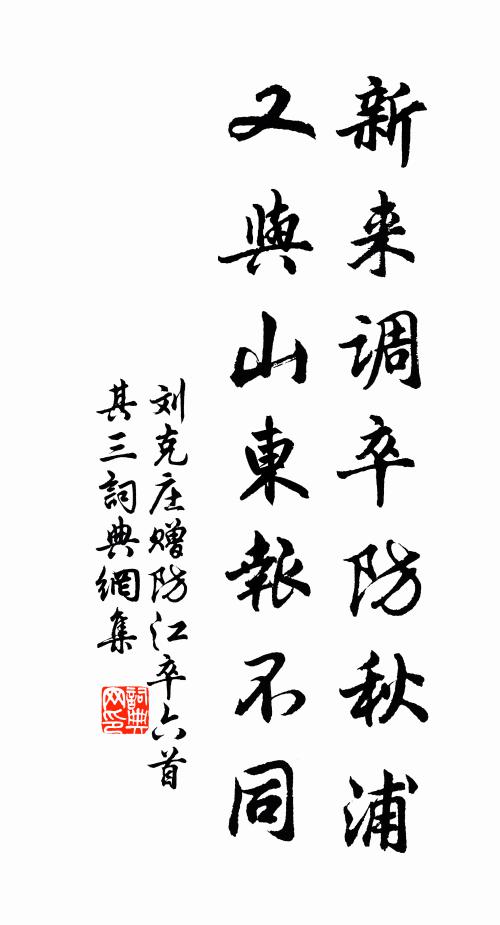 新来調卒防秋浦
又與山東報不同
刘克庄赠防江卒六首
其三詞典網集
詞典网印